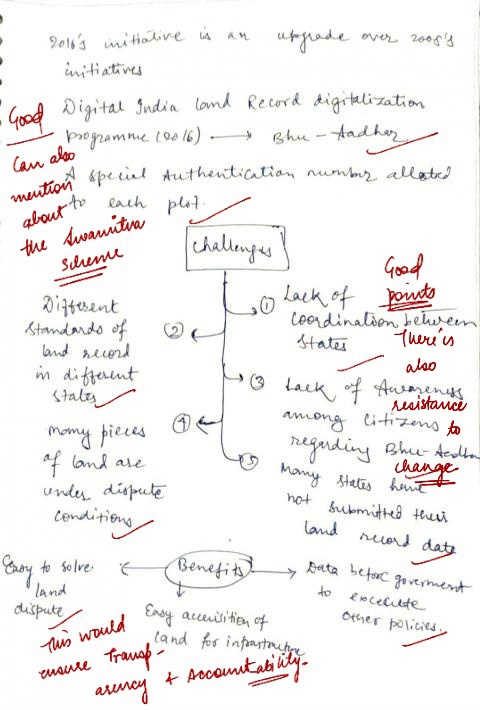 2016's initiative is an upgrade over 2008's
initiatives
Good
Digital India land Record digitalization
programme (2016) → Bhu-Aadhar
Can also
mention
about
the Swamitva
scheme
A special Authentication number alloted
to each plot.
Challenges
Good
points
① Lack of
coordination between
states
There is
also
resistance
to
change
Different
standards of
land record
in different
states
②
③ Lack of Awareness
among citizens
regarding Bhu-Aadhar
④
many pieces
of land are
under dispute
conditions
⑤ Many states have
not submitted their
land record date
Benefits
Easy to solve
land
dispute
Easy accuisition of
land for infrastructure
Data before goverment
to excecute
other policies.
This would
ensure Transp-
arency + Accountability.